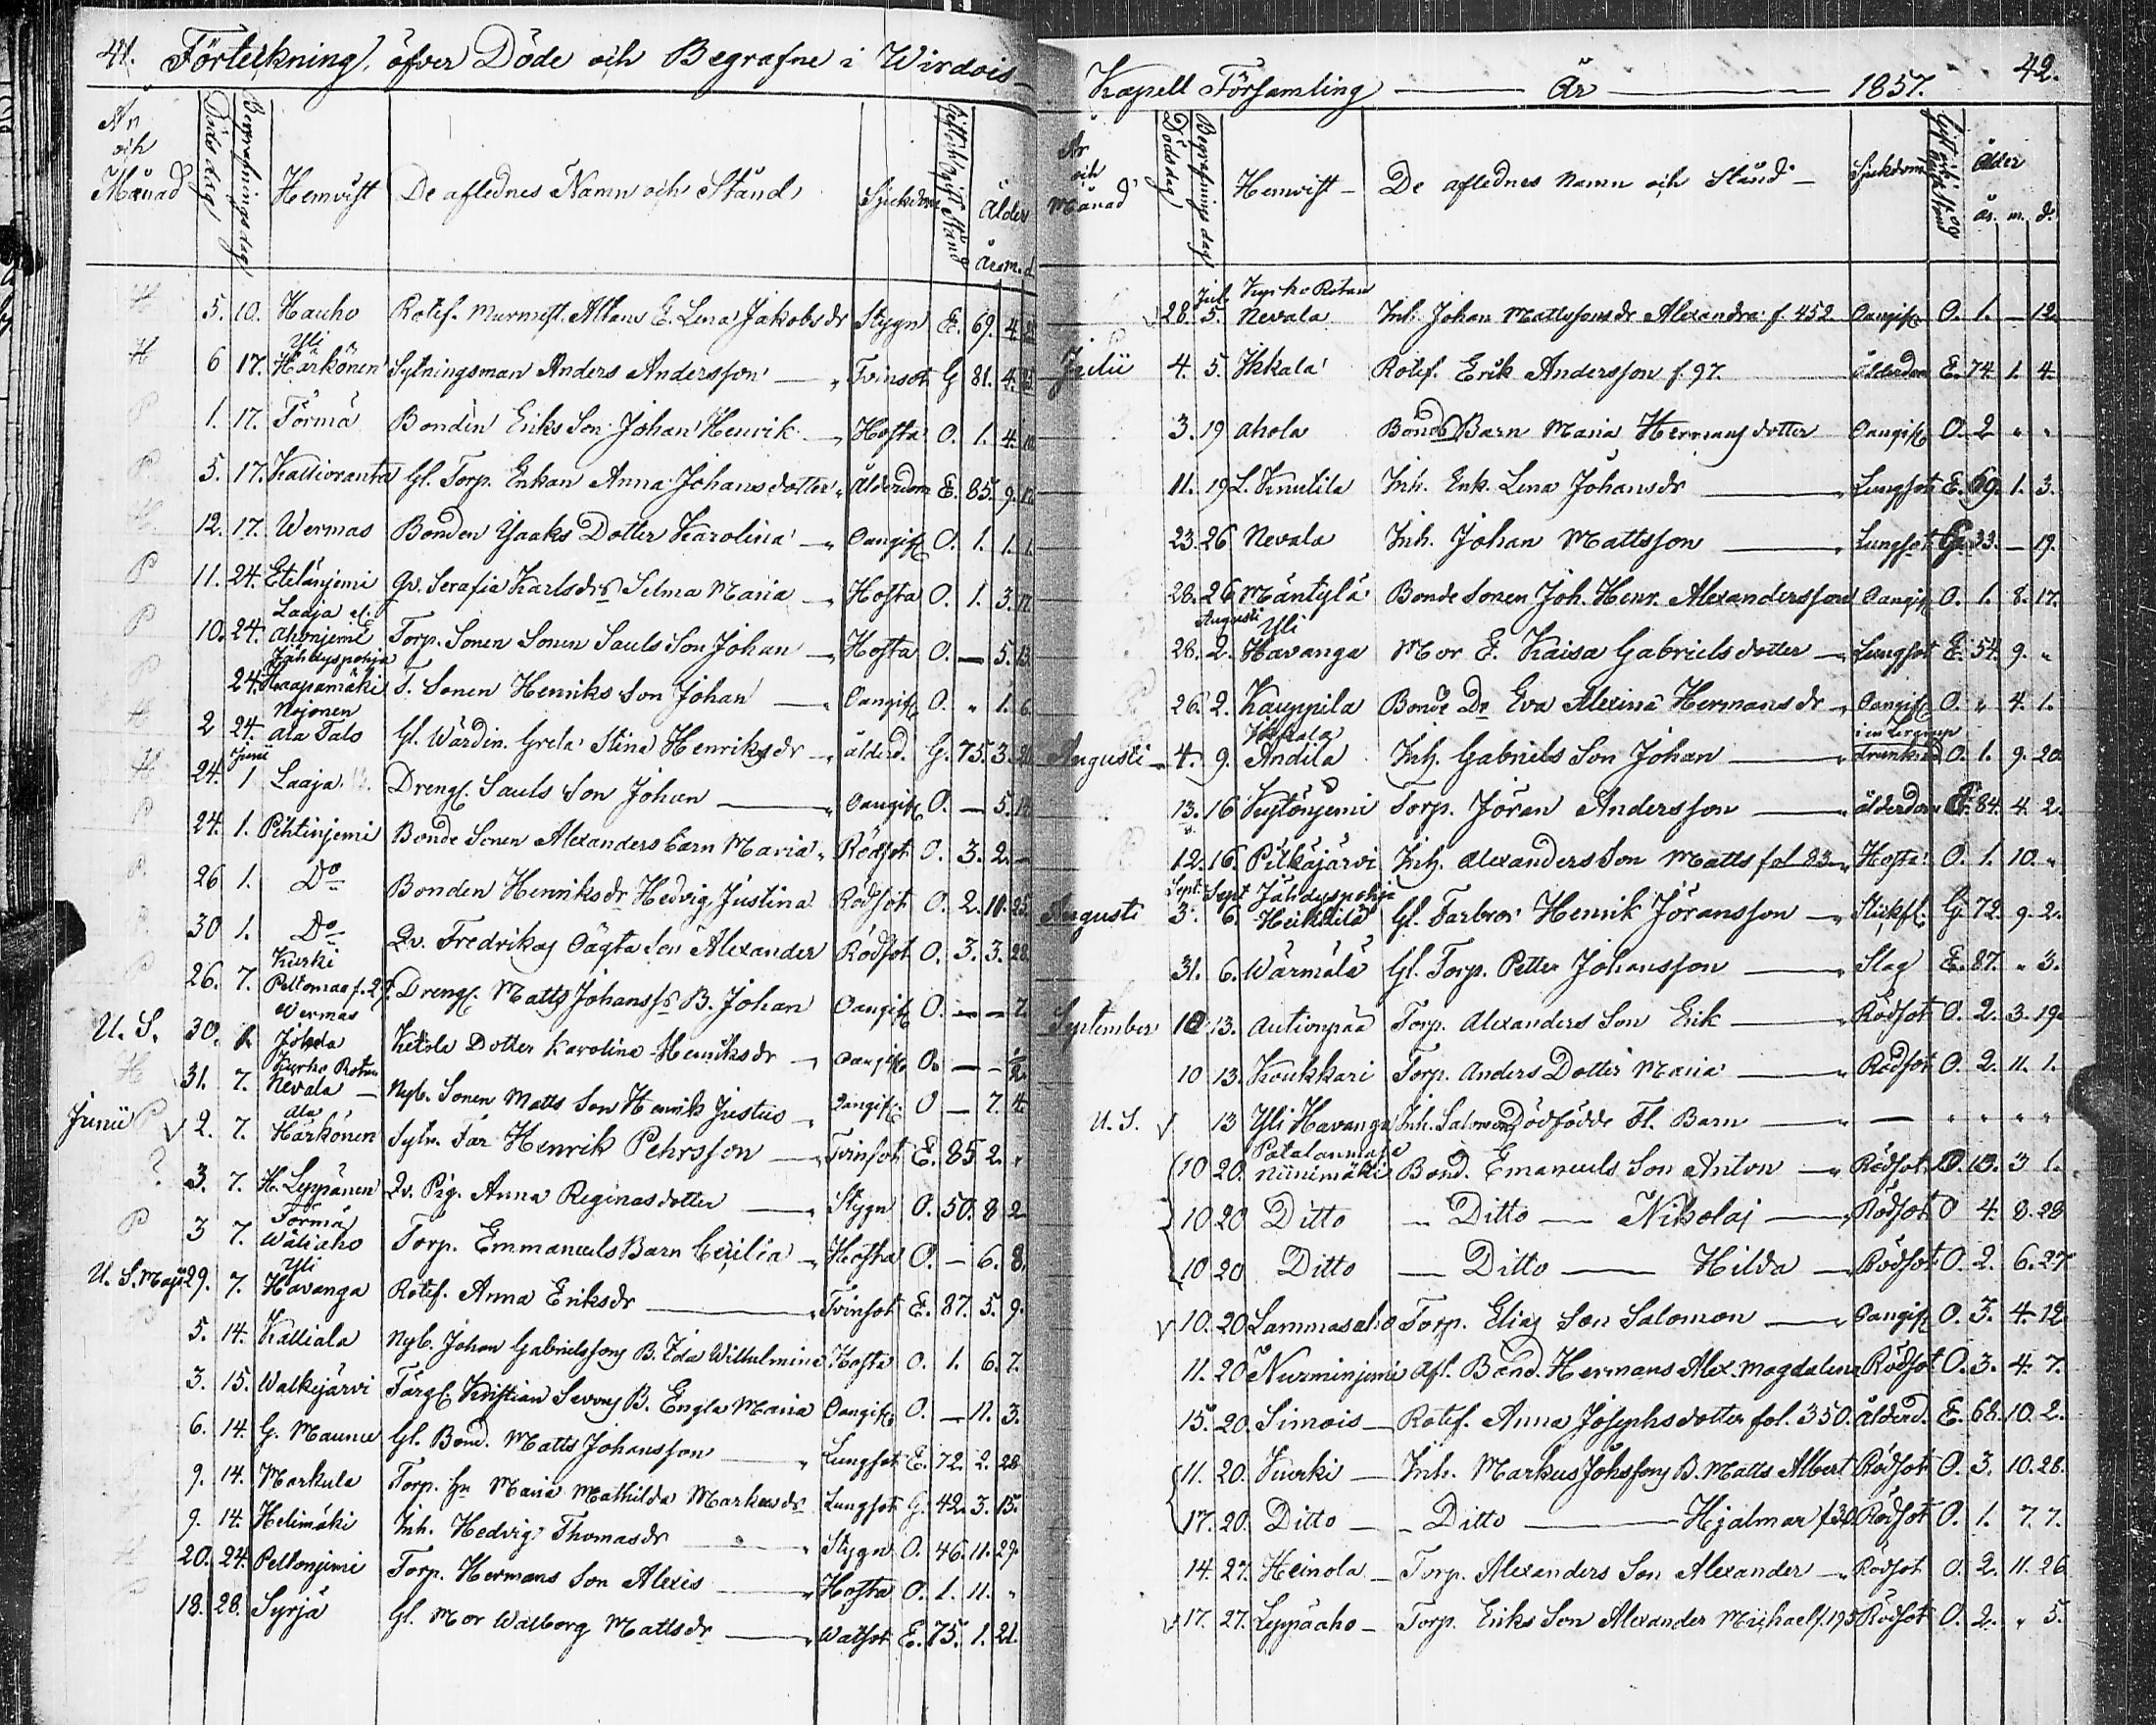 41. Förteckning öfver Döde och Begrafne i Wirdois
År och Månad Döds dag Begrafnings dag Hemvist De aflednes Namn och Stånd Sjukdom Ålder år. m. d.
5. 10. Hauho Rotef. Murmest. Altans E. Lena Jakobsdr Stygn E. 69. 4.
6 17. Yli Härkönen Sytningsman Anders Andersson Tvinsot G 81. 4.
1. 17. Törmä Bonden Eriks Son Johan Henrik Hosta O. 1. 4.
5. 17. Kallioranta Gl. Torp. Enkan Anna Johansdotter Ålderdom E. 85. 9.
12. 17. Wermas Bonden Isaaks Dotter Karolina Oangif O. 1. 1. 1.
11. 24. Etelänjemi Qv. Serafia Karlsdrs Selma Maria Hosta O. 1. 3.
10. 24. Laaja Ahonjemi Torp. Sonen Sonen Sauls Son Johan Hosta O. — 5. 13.
24. Jähdyspohja Haapamäki T. Sonen Henriks Son Johan Oangif O. " 1. 6.
2 24. Nojonen Ala Talo Gl. Wärdin. Greta Stina Henriksdr ålderd. G. 75. 3.
24. Junii 1 Laaja Drengs. Sauls Son Johan Oangif O. — 5.
24. 1. Pihtinjemi Bonde Sonen Alexanders barn Maria Rödsot O. 3. 2. —
26 1. Do Bonden Henriksdr Hedvig Justina Rödsot O. 2. 10. 25.
30 1. Do Qv. Fredrikas Oägta Son Alexander Rödsot O. 3. 3. 28.
26. 7. Kurki Peltomaa Drengs. Matts Johanss B. Johan Oangif O. — — 7.
U. S. 30. Wermas Johda Ketola Dotter Karolina Henriksdr Oangif O. — —
31. 7. Kurko Rotan Nevala Nyb. Sonen Matts Son Henrik Justus Oangif. O — 7. 4.
Junii 2. 7. Ala Härkönen Sytn. Far Henrik Pehrsson Tvinsot E. 85 2. "
3. 7. H. Leppänen Qv. Pig. Anna Reginasdotter Stygn O. 50. 8 2
3 7. Törmä Wäliaho Torp. Emmanuels Barn Cecilia Hosta O. — 6. 8.
U. S. Maji 29. 7. Yli Havanga Rotef. Anna Eriksdr Tvinsot E. 87. 5. 9.
5. 14. Kalliala Nyb. Johan Gabrielssons B. Ida Wilhelmina Hosta O. 1. 6. 7.
3. 15. Walkejärvi Färgs. Kristian B. Engla Maria Oangif O. — 11. 3.
6. 14. G. Maunu Gl. Bond. Matts Johansson Lungsot E. 72. 2. 28
9. 14. Markula Torp. Hu Maria Mathilda Markusdr Lungsot G. 42. 3. 15.
9. 14. Helimäki Inh. Hedvig Thomasdr Stygn O. 46. 11. 29.
20. 24. Peltonjemi Torp. Hermans Son Alexis Hosta O. 1. 11. "
18. 28. Syrjä Gl. Mor Walborg Mattsdr Watsot E. 75. 1. 21.
Kapell Församling — År — 1857. 42.
År och Månad Dödsdag Begrafnings dag Hemvist De aflednes Namn och Stånd Sjukdom Ålder år. m. d.
28. Juli 5. Kurko Rotan Nevala Inh. Johan Mattssons dr Alexandra f. 452 Oangif O. 1. — 12.
Julii 4. 5. Ikkala Rotef. Erik Andersson f. 97. Ålderdom E. 74. 1. 4.
3. 19 Ahola Bonds Barn Maria Hermansdotter Oangif O. 2 " "
11. 19 L. Knutila Inh. Enk. Lena Johansdr Lungsot E. 69. 1. 3.
23. 26 Nevala Inh. Johan Mattsson Lungsot G. 33. — 19.
28. 26 Mäntylä Bonde Sonen Joh. Henr. Alexandersson Oangif O. 1. 8. 17.
28. Augusti 2. Yli Havanga Mor E. Kaisa Gabrielsdotter Lungsot E. 54. 9. "
26. 2. Kauppila Bonde Dr Eva Alexina Hermansdr Oangif O. " 4. 1.
Augusti 4. 9. Ikkala Andila Inh. Gabriels Son Johan Drunknad O. 1. 9. 20
13. 16 Torp. Jöran Andersson ålderdom E. 84. 4. 2.
12. 16. Pitkäjärvi Inh. Alexanders Son Matts fol 83 Hosta O. 1. 10. "
Augusti Sept. 3. Sept 6. Jähdyspohja Heikkilä Gl. Farbror Henrik Jöransson Stickfl. G. 72. 9. 2.
31. 6. Wärmälä Gl. Torp. Petter Johansson Slag E. 87. " 3.
September 10 13. Autionpää Torp. Alexanders Son Erik Rödsot O. 2. 3. 19.
10 13. Koukkari Torp. Anders Dotter Maria Rödsot O. 2. 11. 1.
U. S. 13 Yli Havanga Inh. Salomons Dödfödde Fl. Barn — — " " "
10 20. Niinimäki Bond. Emanuels Son Anton Rödsot O. 13. 3 1.
10 20 Ditto — Ditto — Nikolaj Rödsot O 4. 8. 28
10 20 Ditto — Ditto — Hilda Rödsot O. 2. 6. 27
10. 20 Lammasaho Torp. Elias Son Salomon Oangif O. 3. 4. 12
11. 20 Nurminjemi Afl. Bond. Hermans Alex. Magdalena Rödsot O. 3. 4. 7.
15. 20. Simois Rotef. Anna Josephsdotter fol. 350. Ålderd. E. 68. 10. 2.
11. 20. Kurki Inh. Markus Johssons B. Matts Albert Rödsot O. 3. 10. 28.
17. 20. Ditto — Ditto — Hjalmar Rödsot O. 1. 7. 7.
14. 27. Heinola Torp. Alexanders Son Alexander Rödsot O. 2. 11. 26
17. 27. Leppäaho Torp. Eriks Son Alexander Michael f. 195 Rödsot O. 2. " 5.